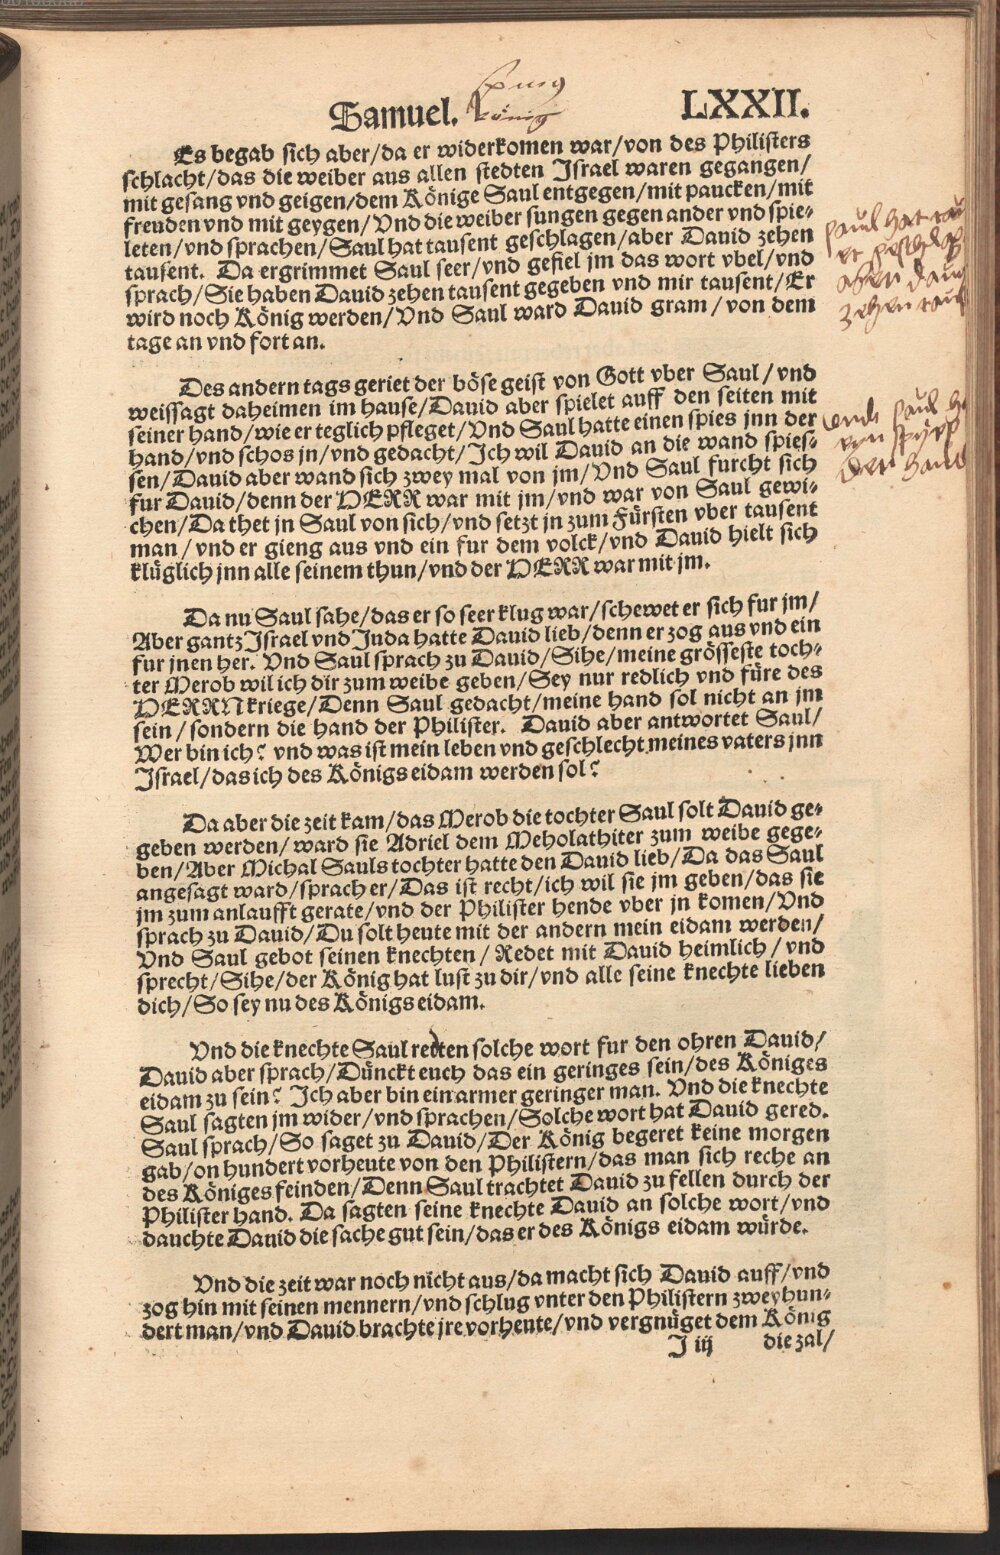 Samuel. König LXXII.
Es begab sich aber/da er widerkomen war/von des Philisters
schlacht/das die weiber aus allen stedten Israel waren gegangen/
mit gesang vnd geigen/dem Könige Saul entgegen/mit paucken/mit
freuden vnd mit geygen/Vnd die weiber sungen gegen ander vnd spie-
leten/vnd sprachen/Saul hat tausent geschlagen/aber Dauid zehen
tausent. Da ergrimmet Saul seer/vnd gefiel jm das wort vbel/vnd
sprach/Sie haben Dauid zehen tausent gegeben vnd mir tausent/Er
wird noch König werden/Vnd Saul ward Dauid gram/von dem
tage an vnd fort an.
Saul hat
aber
zehen
Des andern tags geriet der böse geist von Gott vber Saul/vnd
weissagt daheimen im hause/Dauid aber spielet auff den seiten mit
seiner hand/wie er teglich pfleget/Vnd Saul hatte einen spies jnn der
hand/vnd schos jn/vnd gedacht/Ich wil Dauid an die wand spies-
sen/Dauid aber wand sich zwey mal von jm/Vnd Saul furcht sich
fur Dauid/denn der HERR war mit jm/vnd war von Saul gewi-
chen/Da thet jn Saul von sich/vnd setzt jn zum Fürsten vber tausent
man/vnd er gieng aus vnd ein fur dem volck/vnd Dauid hielt sich
klüglich jnn alle seinem thun/vnd der HERR war mit jm.
Saul
Da nu Saul sahe/das er so seer klug war/schewet er sich fur jm/
Aber gantz Israel vnd Juda hatte Dauid lieb/denn er zog aus vnd ein
fur jnen her. Vnd Saul sprach zu Dauid/Sihe/meine grösseste toch-
ter Merob wil ich dir zum weibe geben/Sey nur redlich vnd füre des
HERRN kriege/Denn Saul gedacht/meine hand sol nicht an jm
sein/sondern die hand der Philister. Dauid aber antwortet Saul/
Wer bin ich? vnd was ist mein leben vnd geschlecht meines vaters jnn
Israel/das ich des Königs eidam werden sol?
Da aber die zeit kam/das Merob die tochter Saul solt Dauid ge-
geben werden/ward sie Adriel dem Meholathiter zum weibe gege-
ben/Aber Michal Sauls tochter hatte den Dauid lieb/Da das Saul
angesagt ward/sprach er/Das ist recht/ich wil sie jm geben/das sie
jm zum anlaufft gerate/vnd der Philister hende vber jn komen/Vnd
sprach zu Dauid/Du solt heute mit der andern mein eidam werden/
Vnd Saul gebot seinen knechten/Redet mit Dauid heimlich/vnd
sprecht/Sihe/der König hat lust zu dir/vnd alle seine knechte lieben
dich/So sey nu des Königs eidam.
Vnd die knechte Saul redten solche wort fur den ohren Dauid/
Dauid aber sprach/Dünckt euch das ein geringes sein/des Königes
eidam zu sein? Ich aber bin ein armer geringer man. Vnd die knechte
Saul sagten jm wider/vnd sprachen/Solche wort hat Dauid gered.
Saul sprach/So saget zu Dauid/Der König begeret keine morgen
gab/on hundert vorheute von den Philistern/das man sich reche an
des Königes feinden/Denn Saul trachtet Dauid zu fellen durch der
Philister hand. Da sagten seine knechte Dauid an solche wort/vnd
dauchte Dauid die sache gut sein/das er des Königs eidam würde.
Vnd die zeit war noch nicht aus/da macht sich Dauid auff/vnd
zog hin mit seinen mennern/vnd schlug vnter den Philistern zweyhun-
dert man/vnd Dauid brachte jre vorheute/vnd vergnüget dem König
J iij die zal/